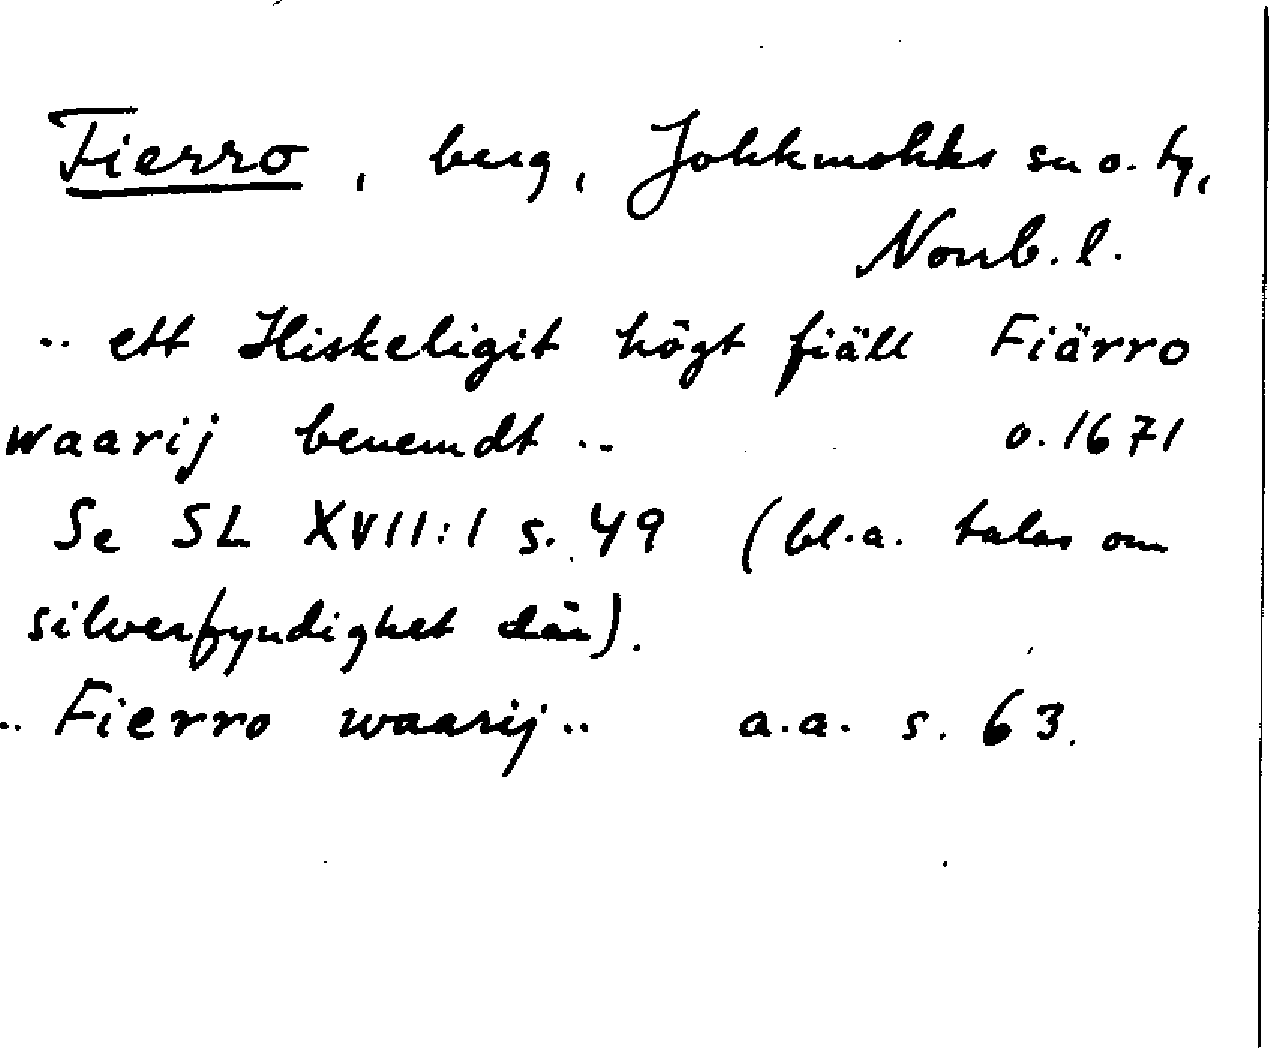 Fierro, berg, Jokkmokks sn o. tg,
Norrb. l.
.. ett Hiskeligit högt fiäll Fiärro
waarij benemdt ..          o. 1671
Se SL XVII:1 s. 49 (bl.a. talas om
silverfyndighet där).
.. Fierro waarij ..          a.a. s. 63.